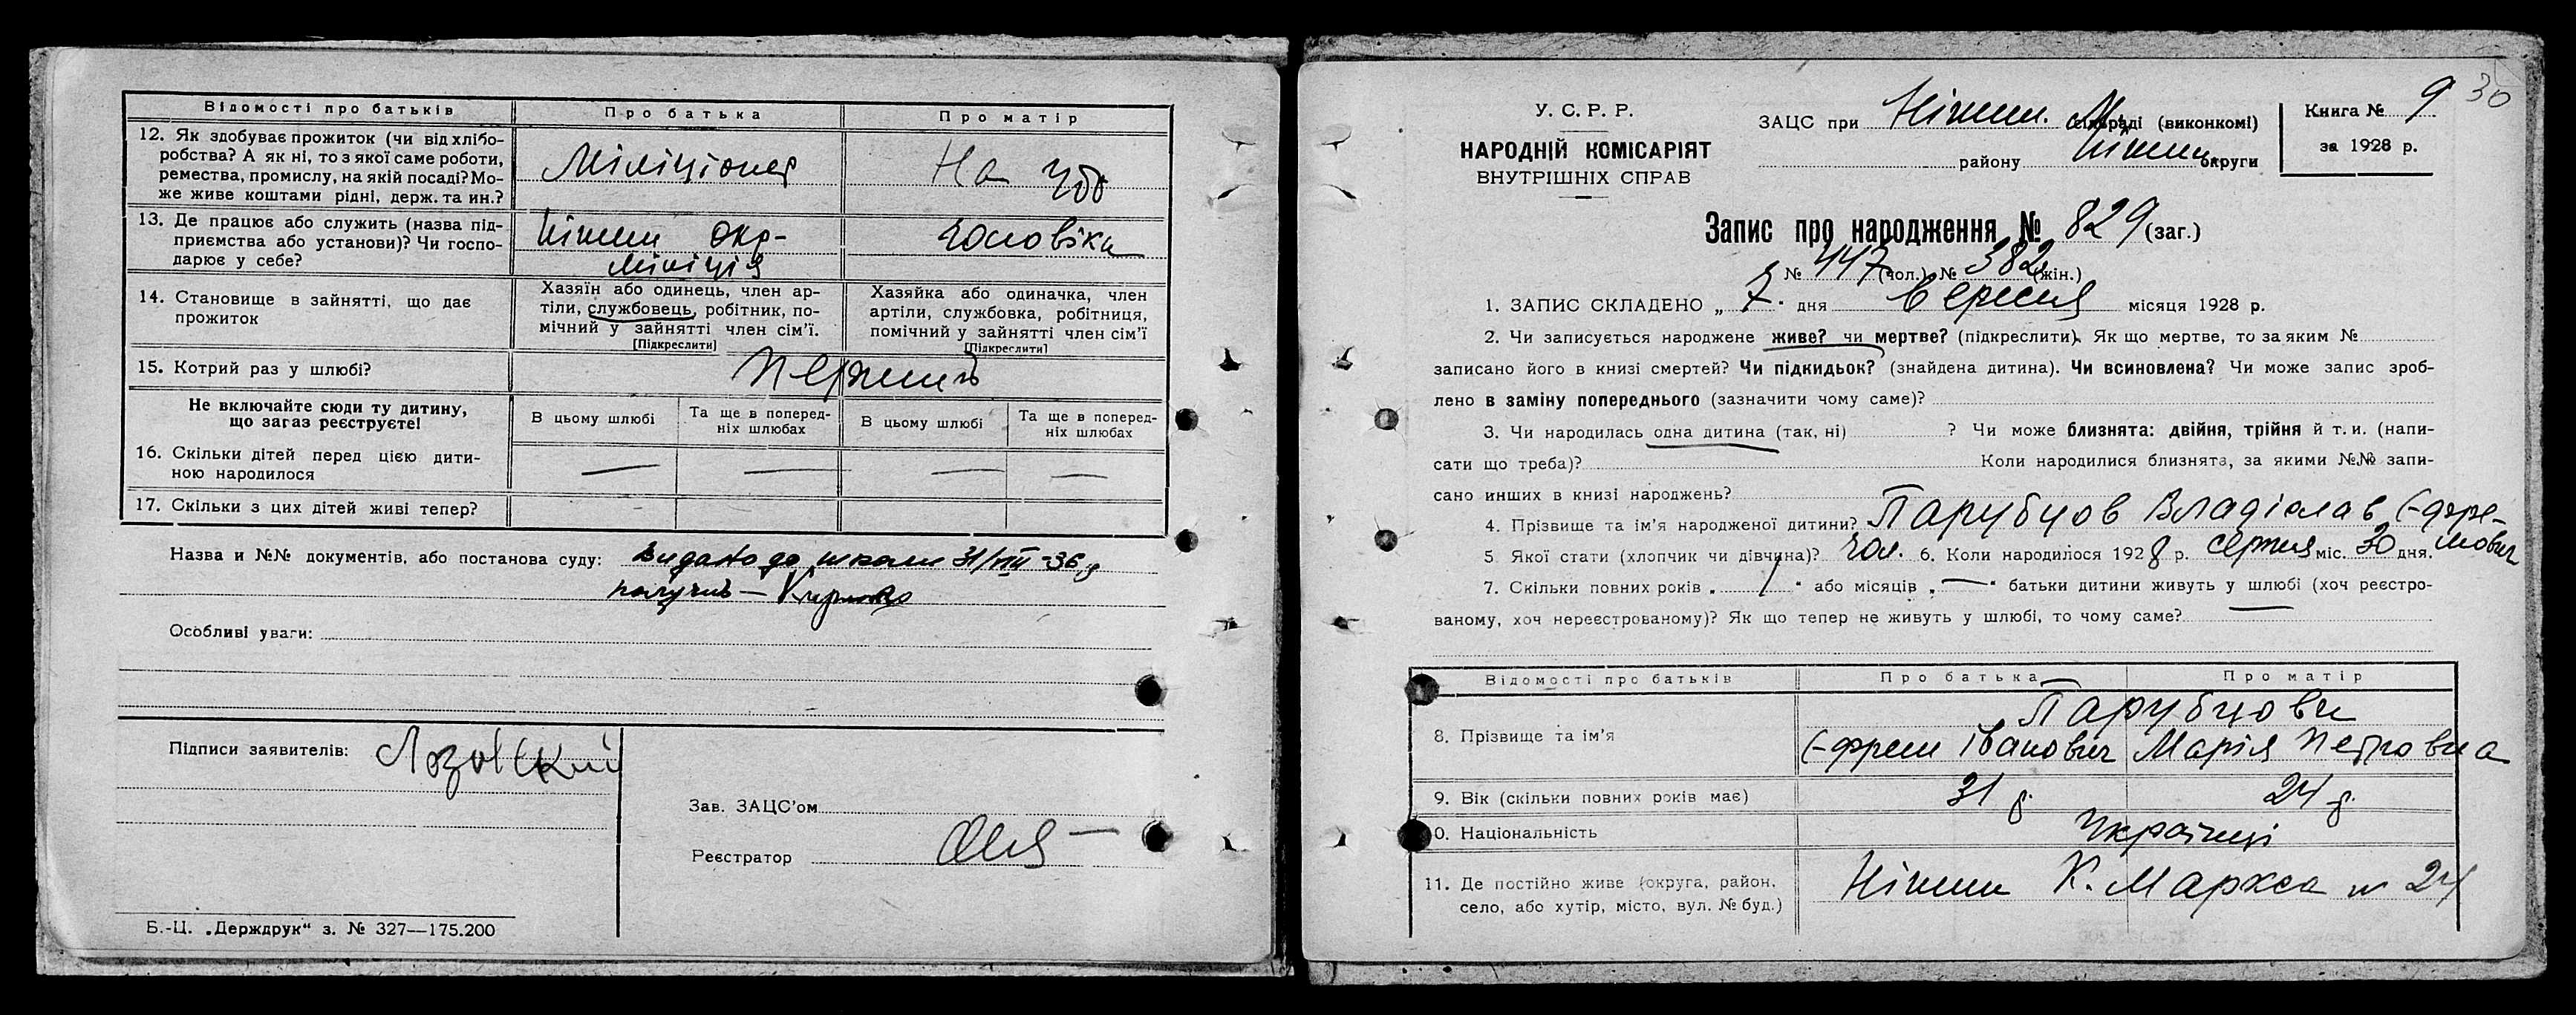 Відомості про батьків | Про батька | Про матір
12. Як здобуває прожиток (чи від хлібо-
робства? А як ні, то з якої саме роботи,
ремества, промислу, на якій посаді? Мо-
же живе коштами рідні, держ. та ин.?
Міліціонер | На утр
13. Де працює або служить (назва під-
приємства або установи)? Чи госпо-
дарює у себе?
Ніжин окр- | Чоловіка
міліція
14. Становище в зайнятті, що дає
прожиток
Хазяїн або одинець, член ар-
тіли, службовець, робітник, по-
мічний у зайнятті член сім'ї.
[Підкреслити]
Хазяйка або одиначка, член
артіли, службовка, робітниця,
помічний у зайнятті член сім'ї
[Підкреслити]
15. Котрий раз у шлюбі?
Не включайте сюди ту дитину,
що загаз реєструєте!
В цьому шлюбі | Та ще в поперед-
ніх шлюбах | В цьому шлюбі | Та ще в поперед-
ніх шлюбах
16. Скільки дітей перед цією дити-
ною народилося — — — —
17. Скільки з цих дітей живі тепер?
Назва и №№ документів, або постанова суду: Видано до школи 31/VIII-36 р
получив —
Особливі уваги:
Підписи заявителів: Лозовский
Зав. ЗАЦС'ом
Реєстратор
Б.-Ц. „Держдрук“ з. № 327—175.200
30
У. С. Р. Р.
НАРОДНІЙ КОМІСАРІЯТ
ВНУТРІШНІХ СПРАВ
ЗАЦС при Ніжин. М. сільраді (виконкомі)
району Ніжин. округи
Книга № 9
за 1928 р.
Запис про народження № 829 (заг.)
№ 447 (чол.) № 382 (жін.)
1. ЗАПИС СКЛАДЕНО „ 7. дня вересня місяця 1928 р.
2. Чи записується народжене живе? чи мертве? (підкреслити). Як що мертве, то за яким №
записано його в книзі смертей? Чи підкидьок? (знайдена дитина). Чи всиновлена? Чи може запис зроб-
лено в заміну попереднього (зазначити чому саме)?
3. Чи народилась одна дитина (так, ні) ? Чи може близнята: двійня, трійня й т. и. (напи-
сати що треба)? Коли народилися близнята, за якими №№ запи-
сано инших в книзі народжень?
4. Прізвище та ім'я народженої дитини? Парубцов Владіслав Єфре-
мович
5. Якої стати (хлопчик чи дівчина)? Чол. 6. Коли народилося 1928 р. серпня міс. 30 дня.
7. Скільки повних років „ 1 “ або місяців „ — “ батьки дитини живуть у шлюбі (хоч реєстро-
ваному, хоч нереєстрованому)? Як що тепер не живуть у шлюбі, то чому саме? —
Відомості про батьків | Про батька | Про матір
8. Прізвище та ім'я
Парубцови
Єфрем Іванович | Марія Петровна
9. Вік (скільки повних років має) 31 р. | 24 р.
10. Національність Українці
11. Де постійно живе (округа, район,
село, або хутір, місто, вул. № буд.)
Ніжин К. Маркса № 24